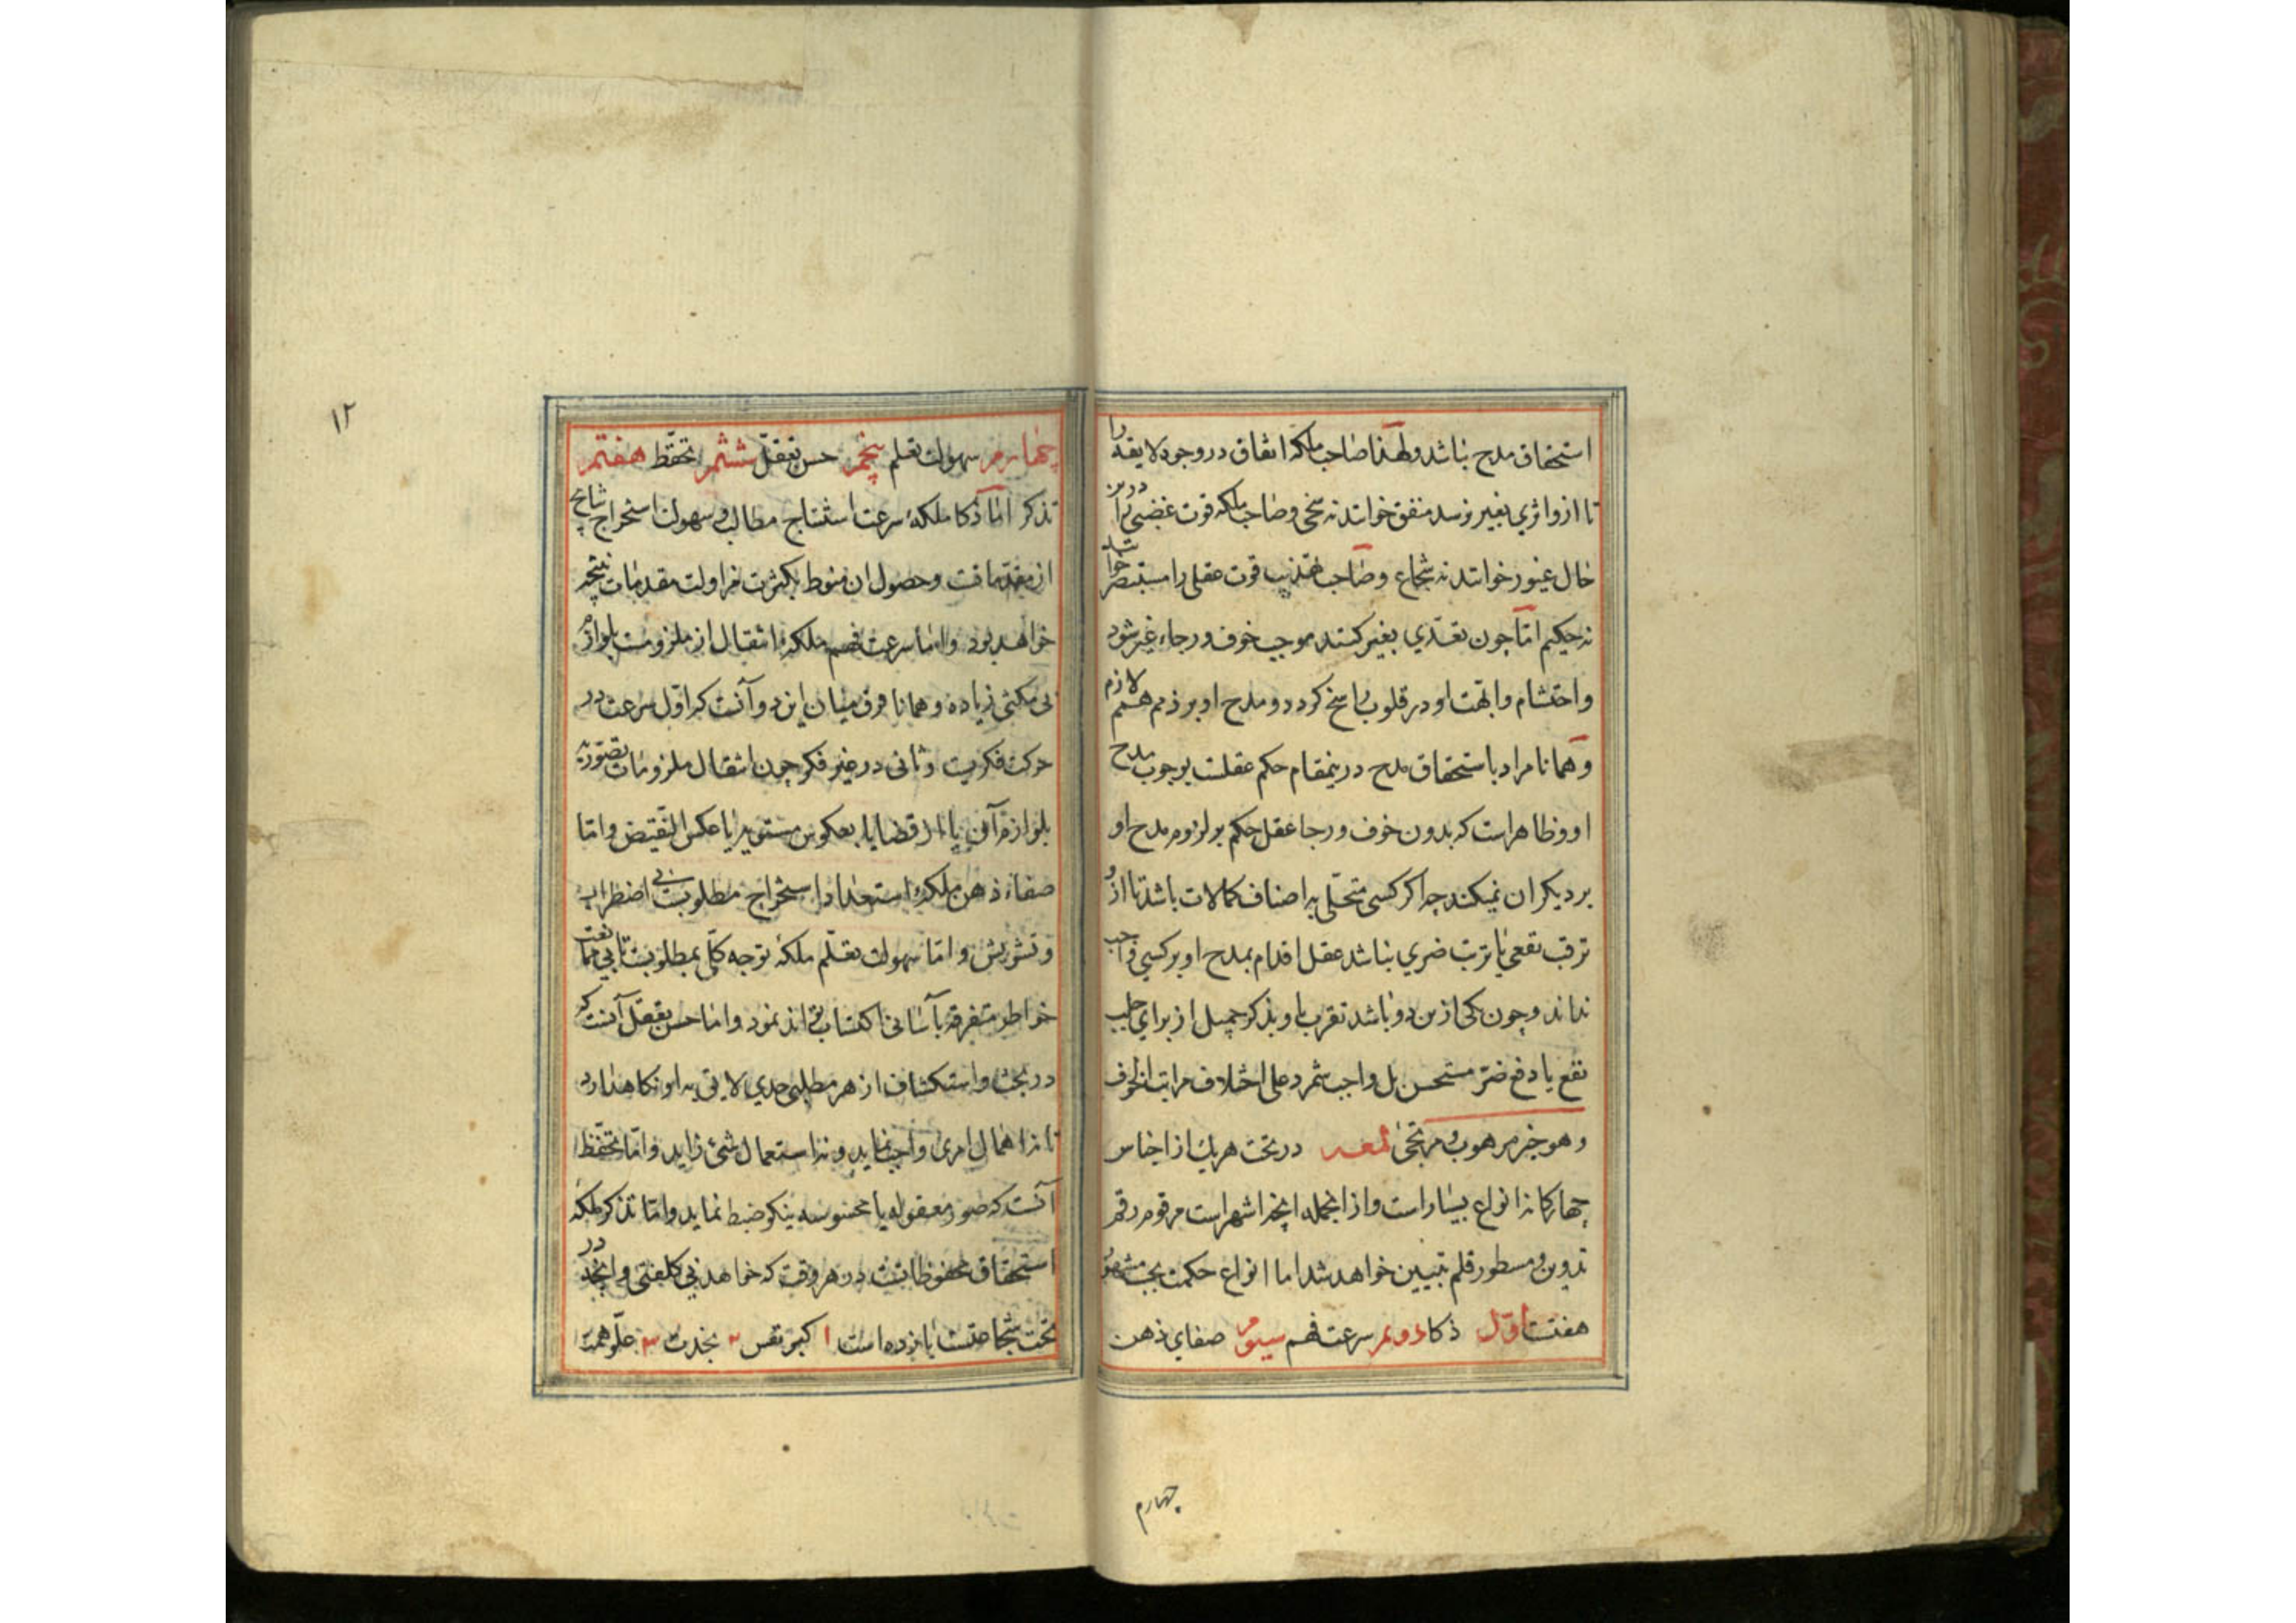 استحقاق مدح نباشد ولهذا صاحب ملکه انفاق در وجوه لایقه را
تا ازو اثری بغیر نرسد منفق خوانند نه سخی و صاحب ملکه قوت غضبی را درین
حال غیور خوانند نه شجاع و صاحب تهذیب قوت عقلی را مستبصر خوانند
نه حکیم اما چون تعدّی بغیر کنند موجب خوف و رجاء غیر شود
و احتشام و ابّهت او در قلوب راسخ کردد و مدح او بر ذمم همم لازم
و همانا مراد باستحقاق مدح درینمقام حکم عقلست بوجوب مدح
او و ظاهر است که بدون خوف و رجا عقل حکم بر لزوم مدح او
بر دیکران نمیکند چه اکر کسی متحلّی به اصناف کمالات باشد تا ازو
ترقب نفعی یا ترتب ضرری نباشد عقل اقدام بمدح او بر کسی واجب
نداند و چون یکی ازین دو باشد تقرب باو بذکر جمیل از برای جلب
نفع یا دفع ضرّ مستحسن بل واجب شمرد علی اختلاف مراتب الخوف
و هو خیر مرهوب و مرتجی لمعه در تحت هریك از اجناس
چهارکانه انواع بیشمار است و از انجمله انچه اشهر است مرقوم رقم
تدوین و مسطور قلم تبیین خواهد شد اما انواع حکمت بحسب مشهور
هفتست اوّل ذکا دویم سرعت فهم سیوم صفای ذهن
چهارم
۱۲
چهارم سهولت تعلم پنجم حسن تعقّل ششم تحفّظ هفتم
تذکر امّا ذکا ملکهٔ سرعت استنتاج مطالب و سهولت استخراج نتایج
از مقدماتست و حصول ان منوط بکثرت مزاولت مقدمات منتجه
خواهد بود و امّا سرعت فهم ملکهٔ انتقال از ملزومست بلوازم
بی مکثی زیاده و همانا فرق میان این دو آنست که اوّل سرعت در
حرکت فکریست و ثانی در غیر فکر چون انتقال ملزومات تصوّریه
بلوازم آن یا از قضایا بعکوس مستویه یا عکس النقیض و امّا
صفاء ذهن ملکهٔ استعداد استخراج مطلوبست بی اضطراب
و تشویش و امّا سهولت تعلّم ملکهٔ توجه کلّی بمطلوبست تا بی ممانعت
خواطر متفرقه بآسانی اکتساب تواند نمود و امّا حسن تعقّل آنست که
در بحث و استکشاف از هر مطلبی حدی لایق به او نکاه دارد
تا نه اهمال امری واجب نماید و نه استعمال شئ زاید و امّا تحفّظ
آنست که صور معقوله یا محسوسه نیکو ضبط نماید و امّا تذکر ملکهٔ
استحقاق محفوظاتست در هر وقت که خواهد بی کلفتی و انچه در
تحت شجاعتست یازده است ۱ کبر نفس ۲ نجدت ۳ علوّ همت